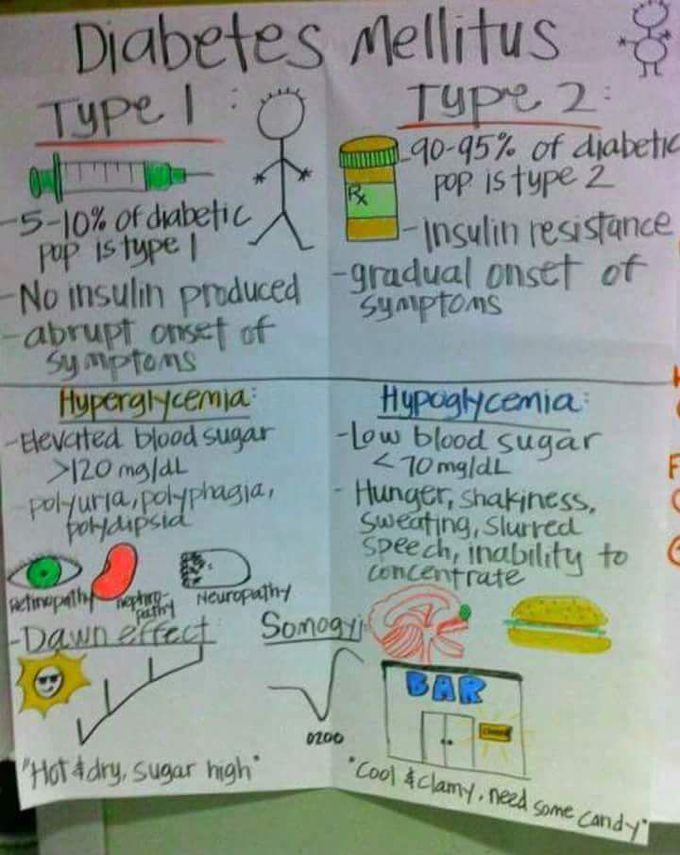 Diabetes Mellitus
Type 1:
-5-10% of diabetic
pop is type 1
-No insulin produced
-abrupt onset of
symptoms
Type 2:
Rx
-90-95% of diabetic
pop is type 2
-Insulin resistance
-gradual onset of
symptoms
Hyperglycemia:
-Elevated blood sugar
>120 mg/dL
-polyuria, polyphagia,
polydipsia
Retinopathy
nephro-
pathy
Neuropathy
-Dawn effect
Somogyi
0200
"Hot & dry, sugar high"
Hypoglycemia:
-Low blood sugar
<70mg/dL
- Hunger, shakiness,
sweating, slurred
speech, inability to
concentrate
BAR
"Cool & clamy, need some candy"